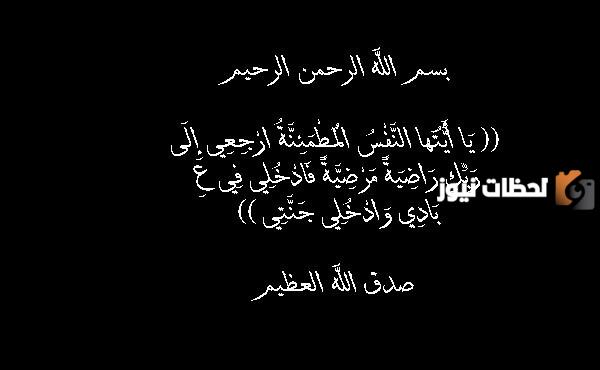 بسم الله الرحمن الرحيم
(( يَا أَيَّتُها النَّفْسُ المُطْمَئِنَّةُ ارْجِعِي إِلَى
رَبِّكِ رَاضِيَةً مَرْضِيَّةً فَادْخُلِي فِي عِ
لحظات نيوز
بَادِي وَادْخُلِي جَنَّتِي ))
صدق الله العظيم